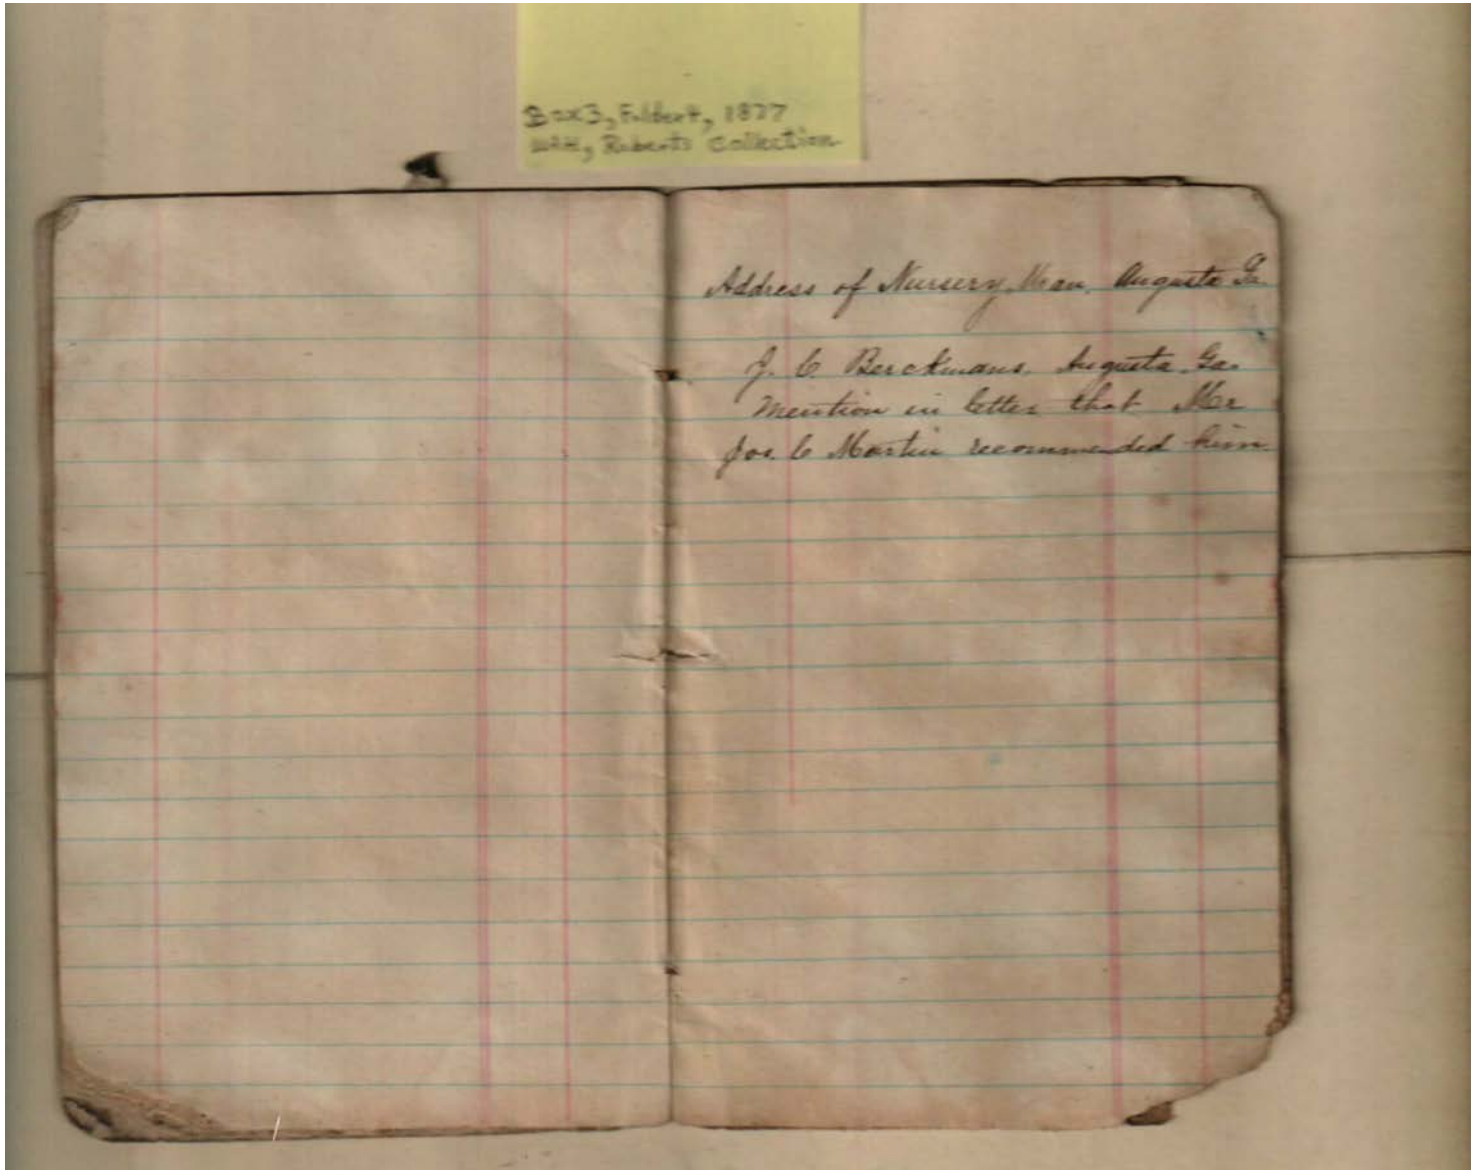 Box 3, Folder 4, 1877
WAH, Roberts Collection
Address of Nursery Man, Augusta Ga.
J. C. Berckmans, Augusta, Ga.
Mention in letter that Mr
Jos. C Martin recommended him